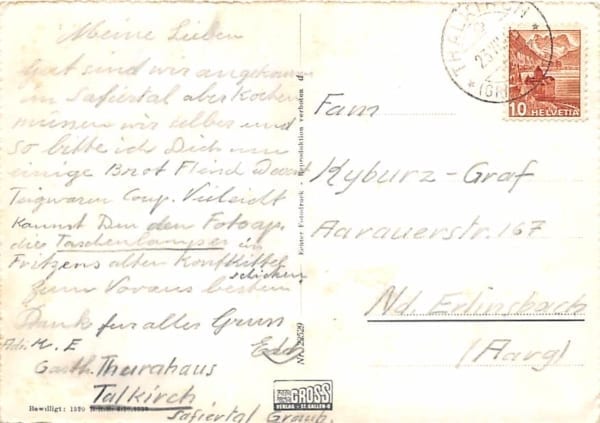 Meine Lieben
Gut sind wir angekommen
im Safiertal aber Kochen
müssen wir selber und
so bitte ich Dich um
einige Brot
Teigwaren Coup. Vieleicht
kannst Du den Fotoap.
die Taschenlampe in
Fritzens alten Konfkittel
schicken
Zum Voraus besten
Dank für alles Gruss
Edi
Adr. H. E
Gasth. Thurahaus
Talkirch
Safiertal Graub.
Bewilligt:
Nr. 22529
Echter Fotodruck - Reproduktion verboten
GROSS
VERLAG - ST. GALLEN-O
THALKIRCH
23.VII
(GR)
10 HELVETIA
Fam
Kyburz-Graf
Aarauerstr. 167
Nd. Erlinsbach
(Aarg)